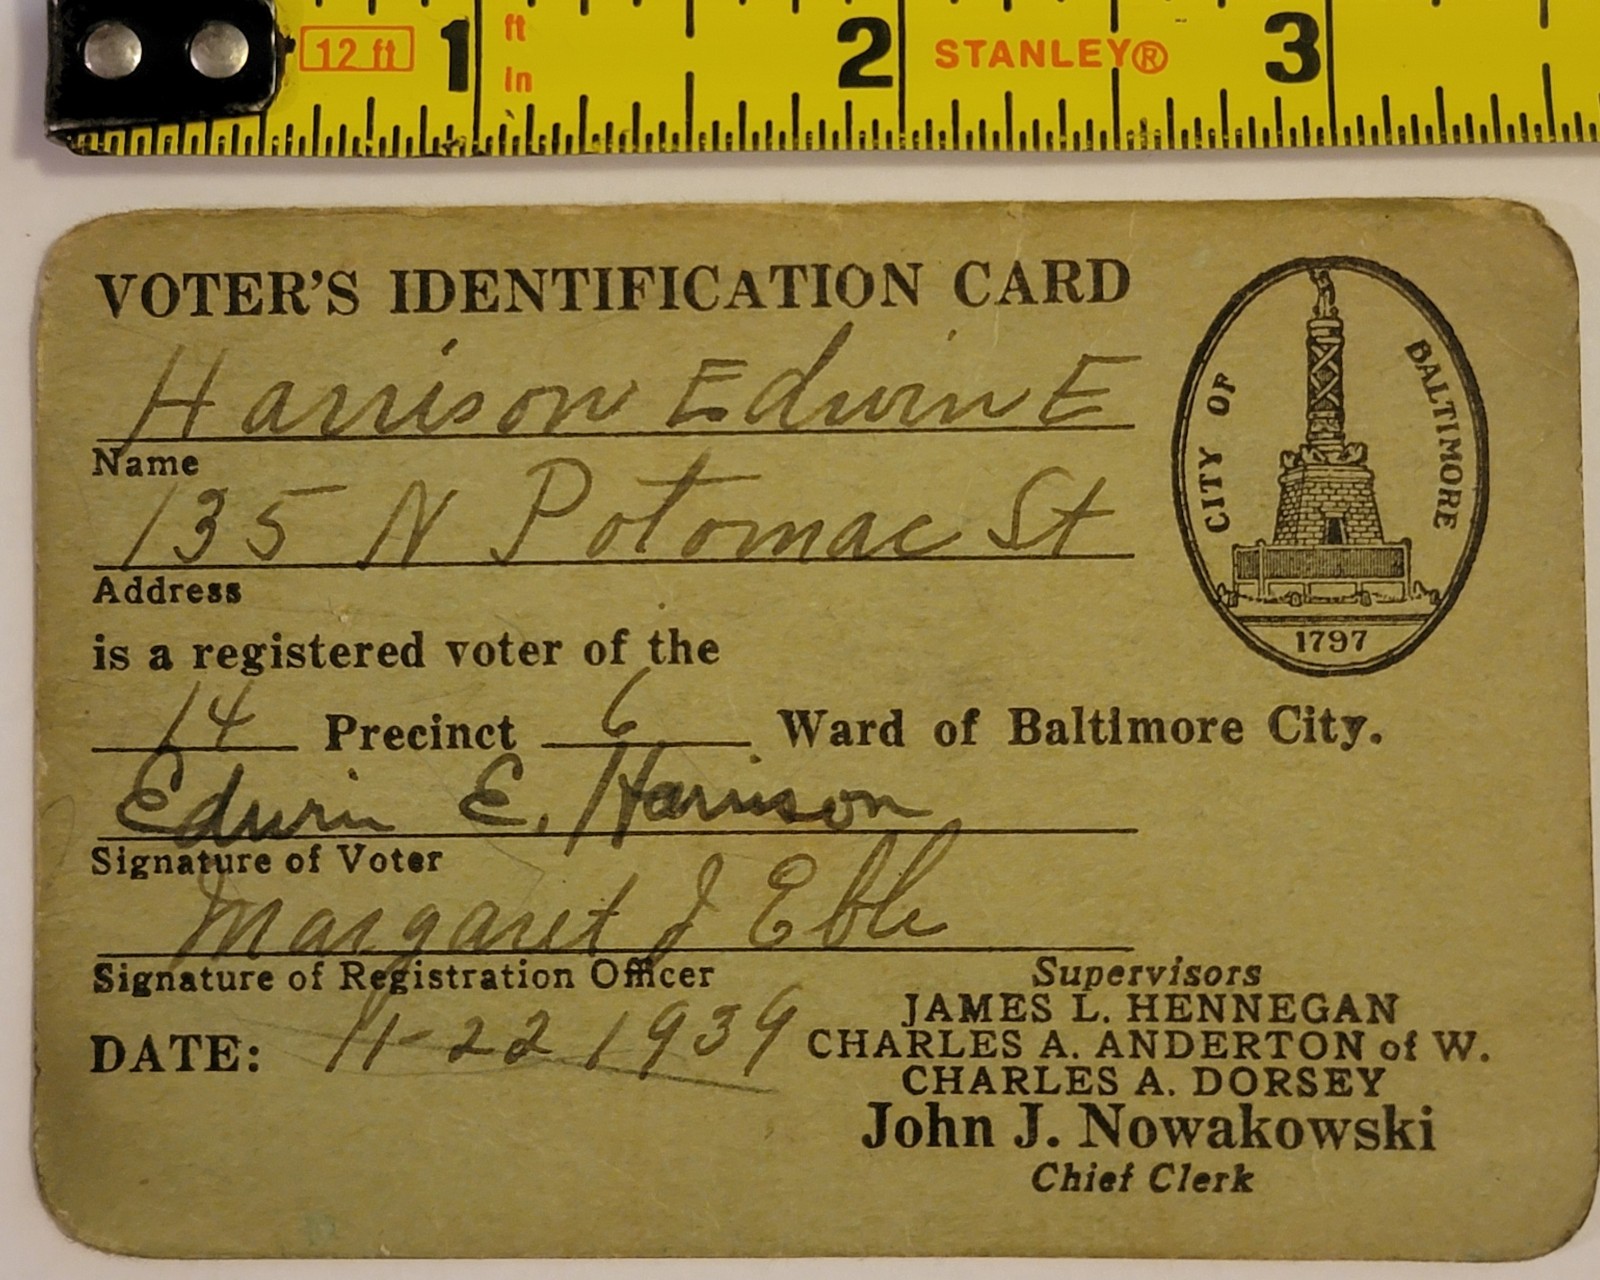 12 ft 1 ft in 2 STANLEY® 3
VOTER'S IDENTIFICATION CARD
Harrison Edwin E
Name
135 N Potomac St
Address
is a registered voter of the
14 Precinct 6 Ward of Baltimore City.
Edwin E. Harrison
Signature of Voter
Margaret J Eble
Signature of Registration Officer
DATE: 11-22 1939
Supervisors
JAMES L. HENNEGAN
CHARLES A. ANDERTON of W.
CHARLES A. DORSEY
John J. Nowakowski
Chief Clerk
CITY OF BALTIMORE
1797